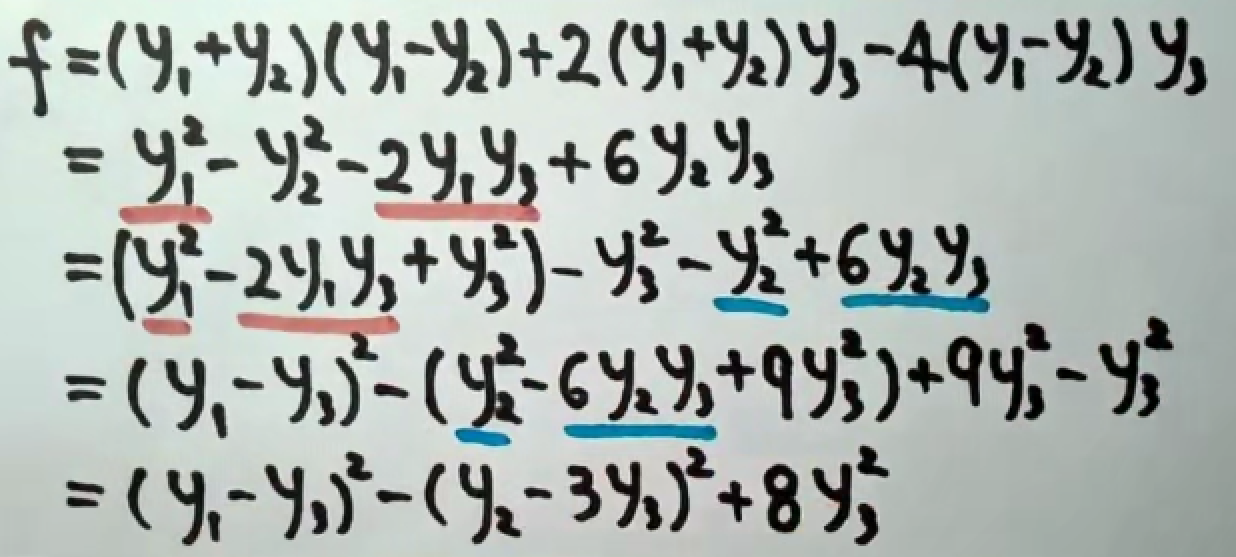 f=(y₁+y₂)(y₁-y₂)+2(y₁+y₂)y₃-4(y₁-y₂)y₃
=y₁²-y₂²-2y₁y₃+6y₂y₃
=(y₁²-2y₁y₃+y₃²)-y₃²-y₂²+6y₂y₃
=(y₁-y₃)²-(y₂²-6y₂y₃+9y₃²)+9y₃²-y₃²
=(y₁-y₃)²-(y₂-3y₃)²+8y₃²